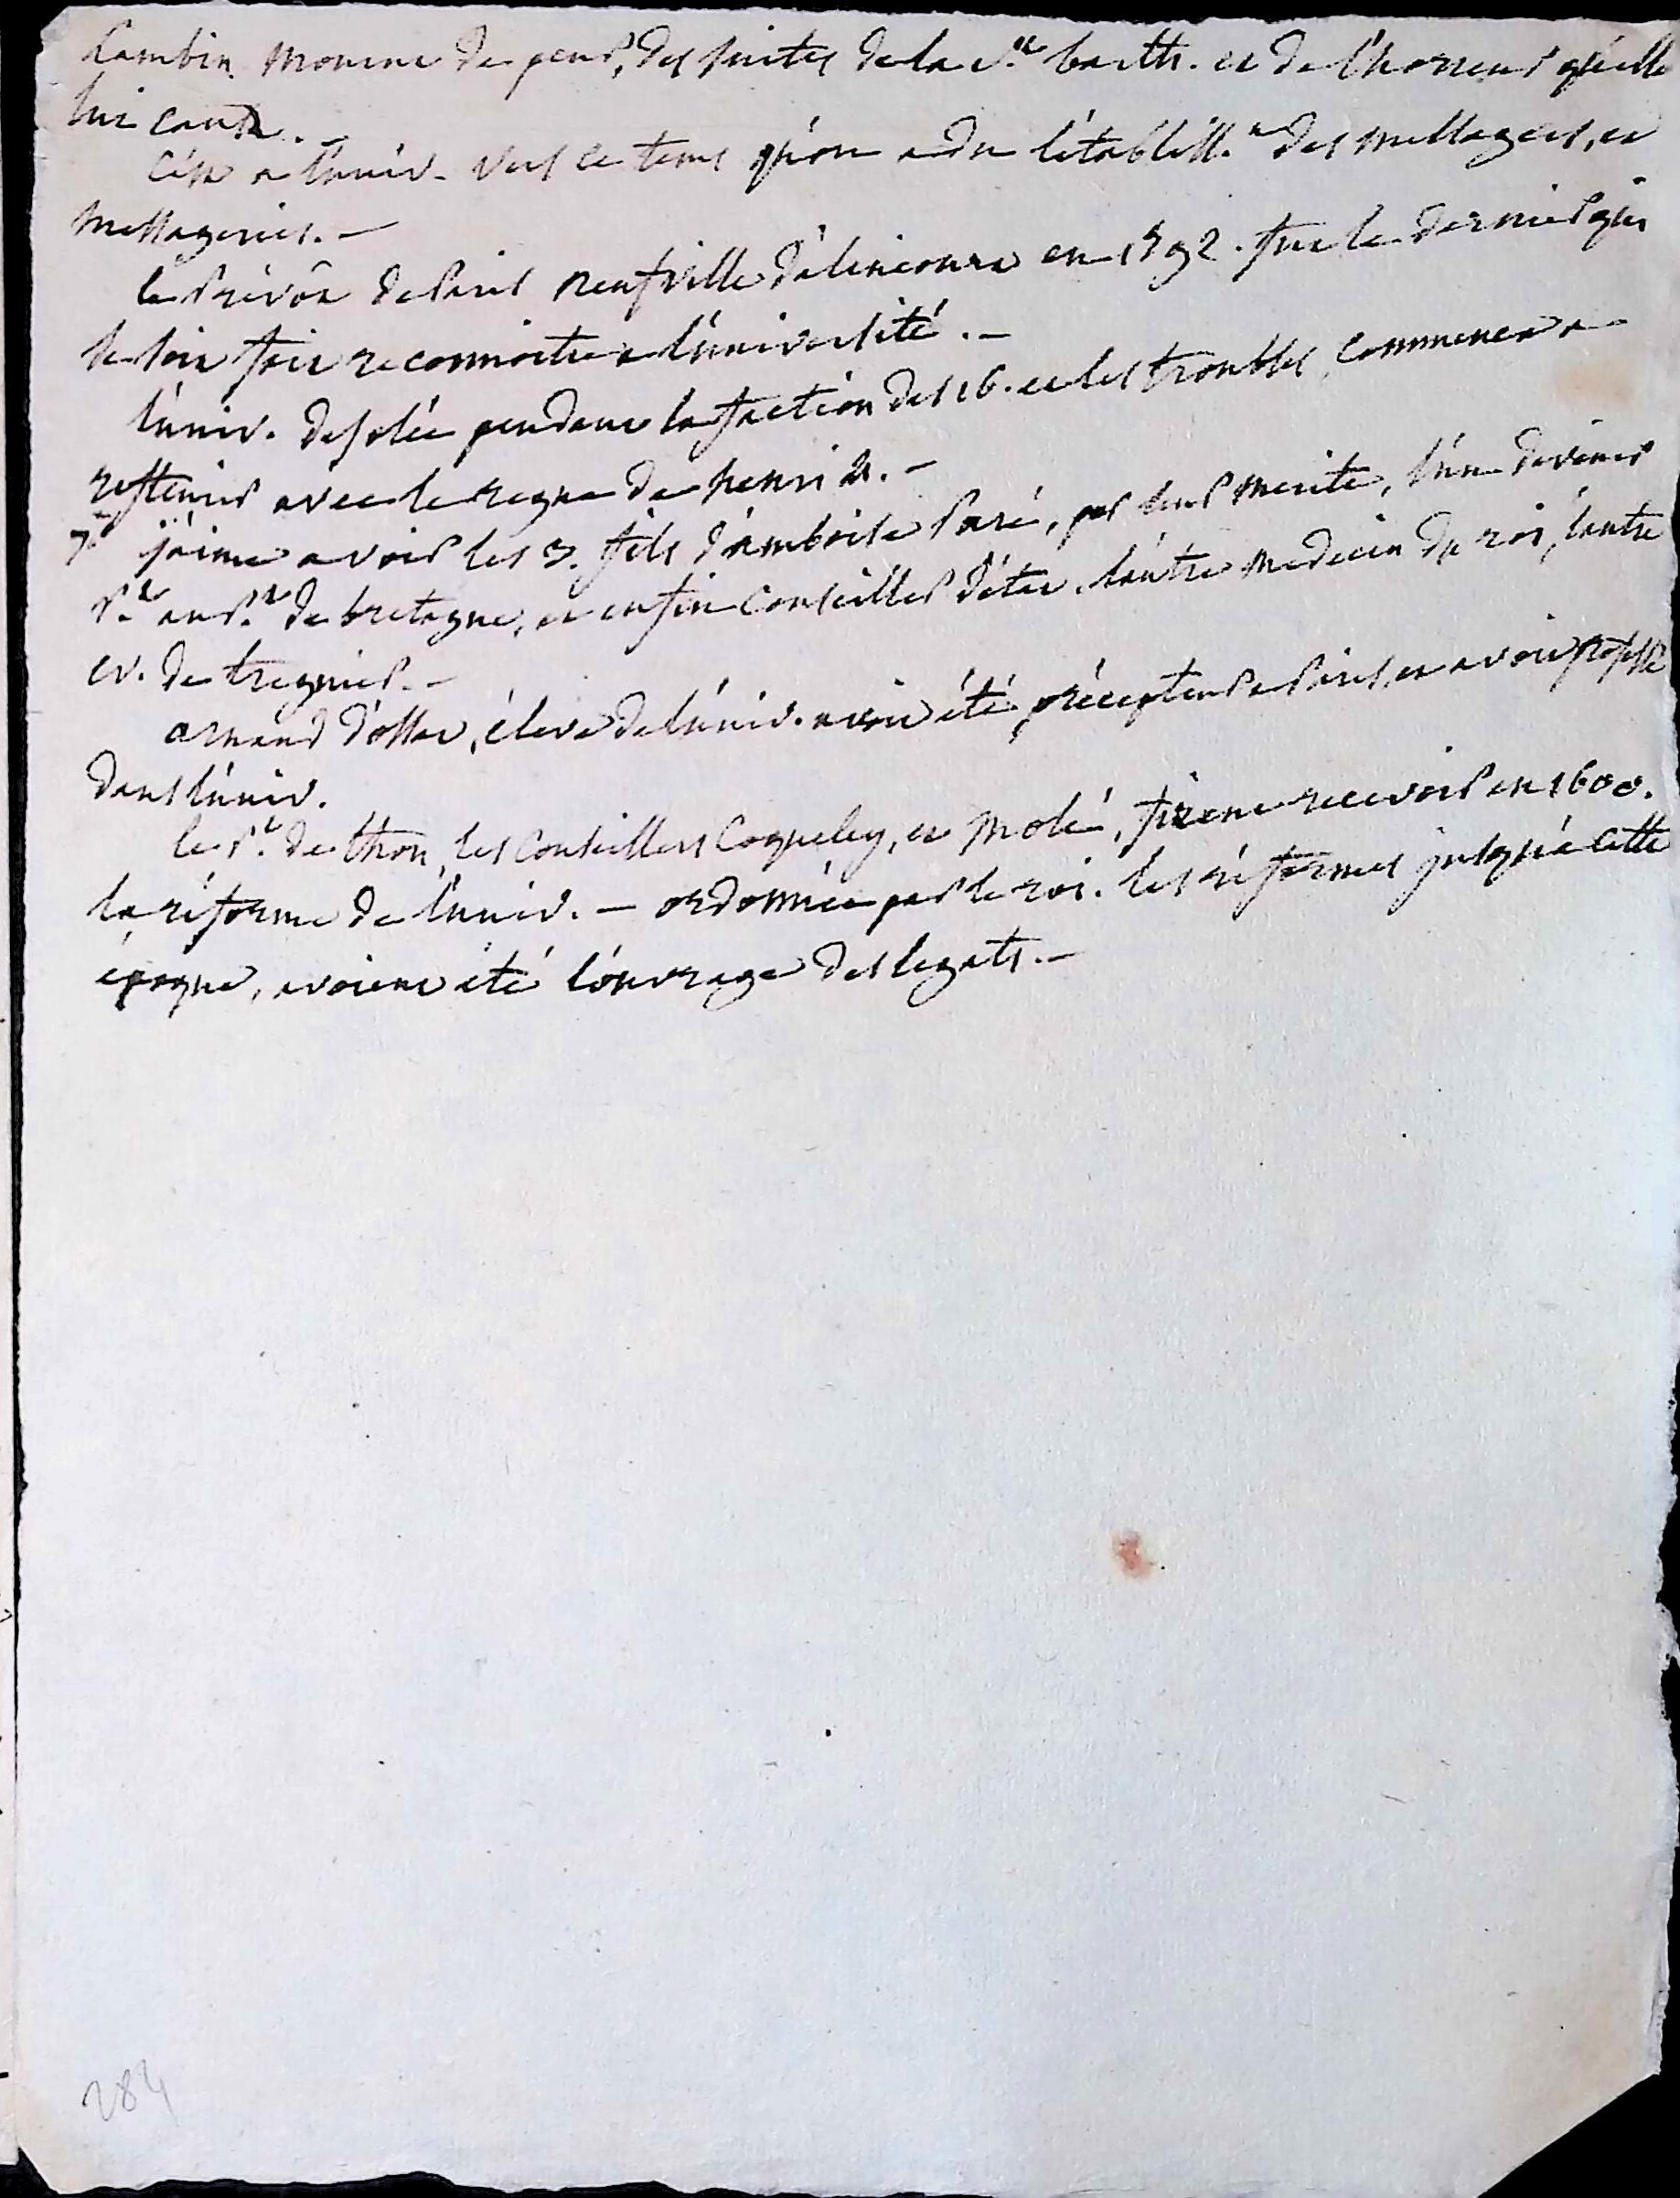 Lambin mourut de peur, des suites de la St barth. et de l'horreur qu'elle
lui causa.
C'est a l'univ. vers ce tems qu'on a du l'établiss.nt des messagers, et
messageries. —
le Prévôt de Paris neufville d'alincourt en 1592. fut le dernier qui
se soit fait reconnoitre a l'université. —
l'univ. desolée pendant la faction des 16. et les troubles, commença a
respirer avec le regne de henri 4. —
j'aime a voir les 3. fils d'amboise Paré, par leur merite, l'un devenir
Pt au Pt de bretagne, et enfin Conseiller d'état. l'autre medecin du roi, l'autre
ev. de treguier. —
arnaud d'ossat, éleve de l'univ. avoit été précepteur a Paris, et avoit professé
dans l'univ.
le Pt de thou, les Conseillers Coqueley, et Molé, firent recevoir en 1600.
la réforme de l'univ. — ordonnée par le roi. les réformes jusqu'a cette
époque, avoient été l'ouvrage des legats. —
284